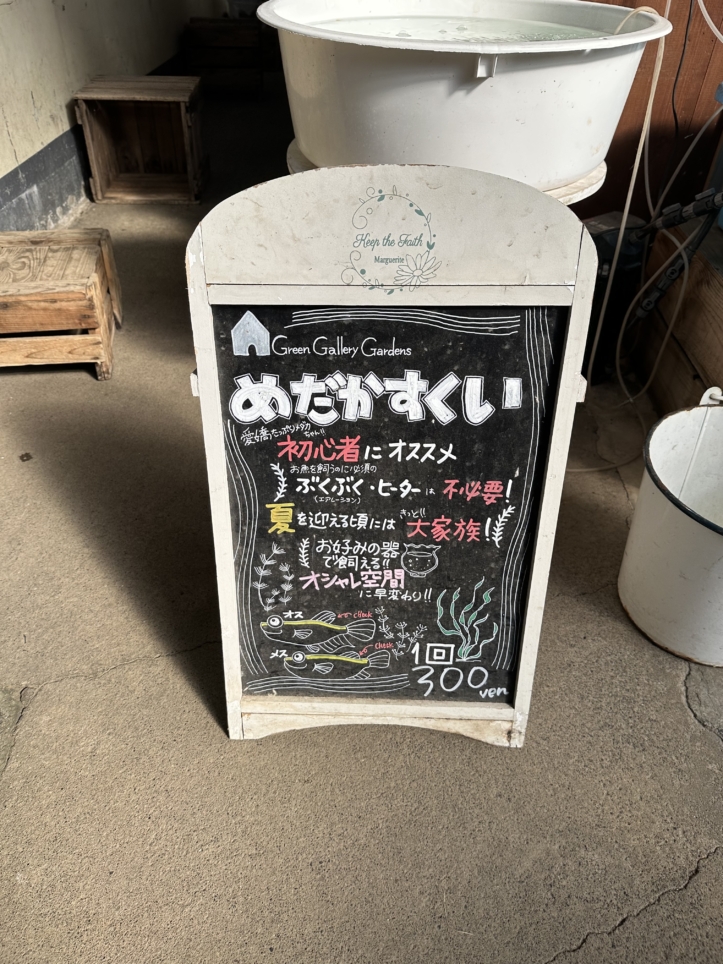 Keep the Faith
Marguerite
Green Gallery Gardens
めだかすくい
愛嬌たっぷりメダカちゃん!!
初心者にオススメ
お魚を飼うのに必須の
ぶくぶく・ヒーターは不必要!
(エアレーション)
きっと!!
夏を迎える頃には大家族!
お好みの器
で飼える!!
オシャレ空間
に早変わり!!
オス check
メス check
1回
300
yen